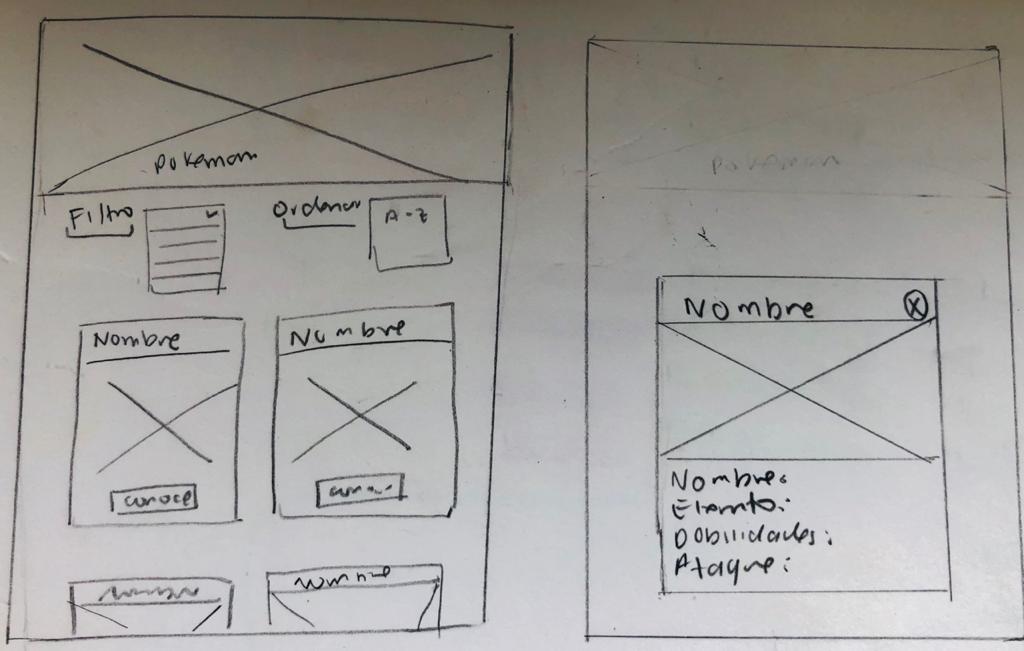 pokemon
Filtro
Ordenar
A-Z
Nombre
Nombre
conoce
Nombre
pokemon
Nombre
X
Nombre:
Elemento:
Debilidades:
Ataque: